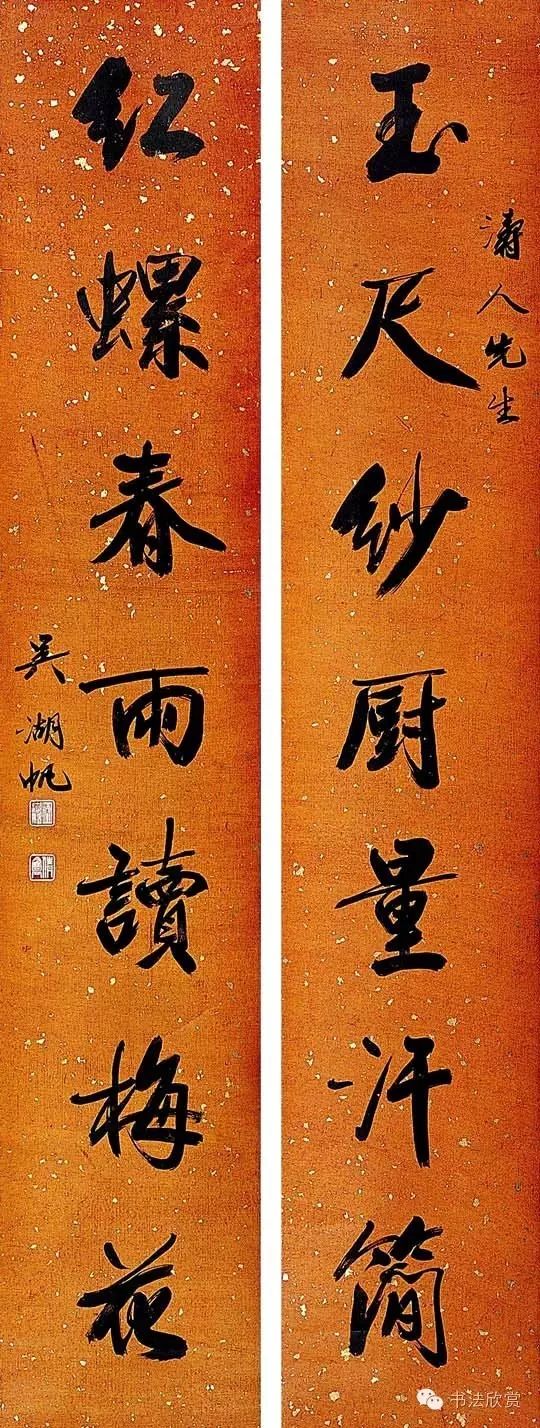 濤人先生
玉尺纱厨量汗简
红螺春雨讀梅花
吴湖帆
书法欣赏